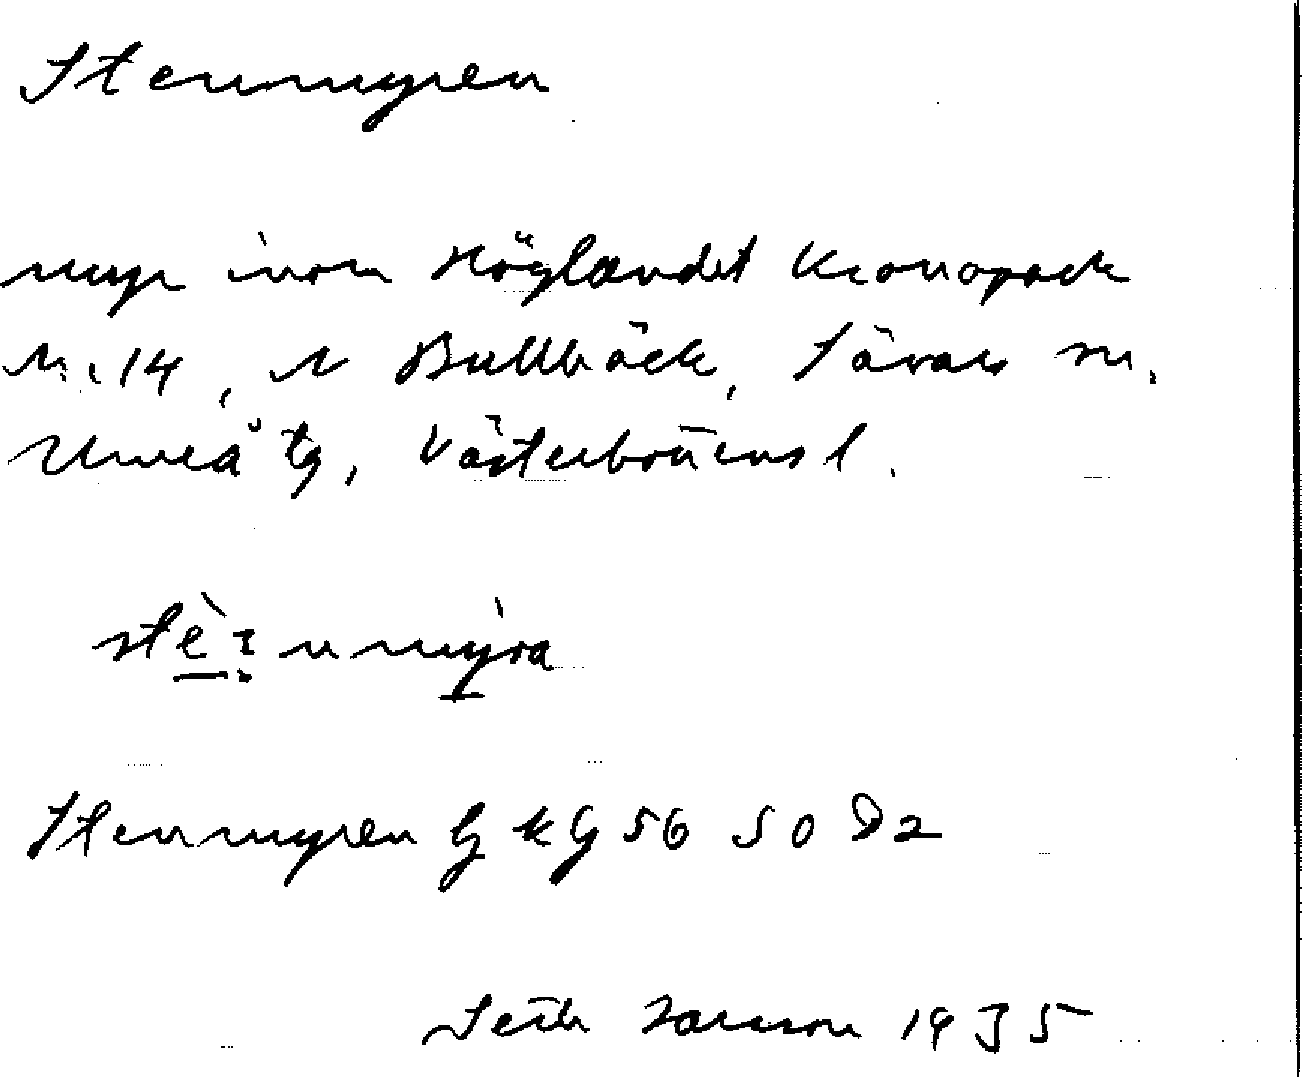 Stenmyren
myr inom Höglandet Kronopark
Nr. 14, N Bullbäck, Sävar sn.
Umeå tg, Västerbottens l.
stè:nmỳra
Stenmyren Gj kg 56 50 D2
Jansson 1935